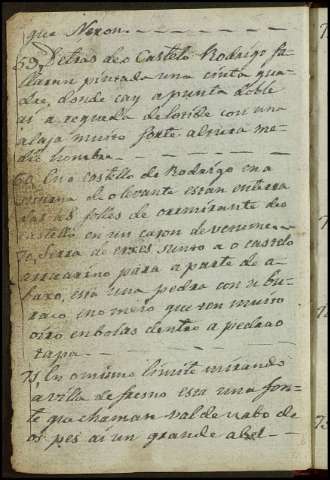 que Neron.
59, Detras deo Castelo Rodrigo fa-
llaran pintada una cinta qua-
dre, donde cay a punta
ai a reguada deloride con una
alaja muito forte altura me-
die hombre.
60, En o castello de Rodrigo en a
de o levante estan enterra-
das as folles de deo
castello en un caxon de
70, Serra de exes junto a o castelo
para a parte de a-
baxo, esta una pedra con u bu-
raco no meio que ten muito
oiro en bolas dentro a pedra o
tapa.
71, En o mismo limite mirando
a villa de fresno esta una fon-
te que chaman val de nabo de
os pes ai un grande abel